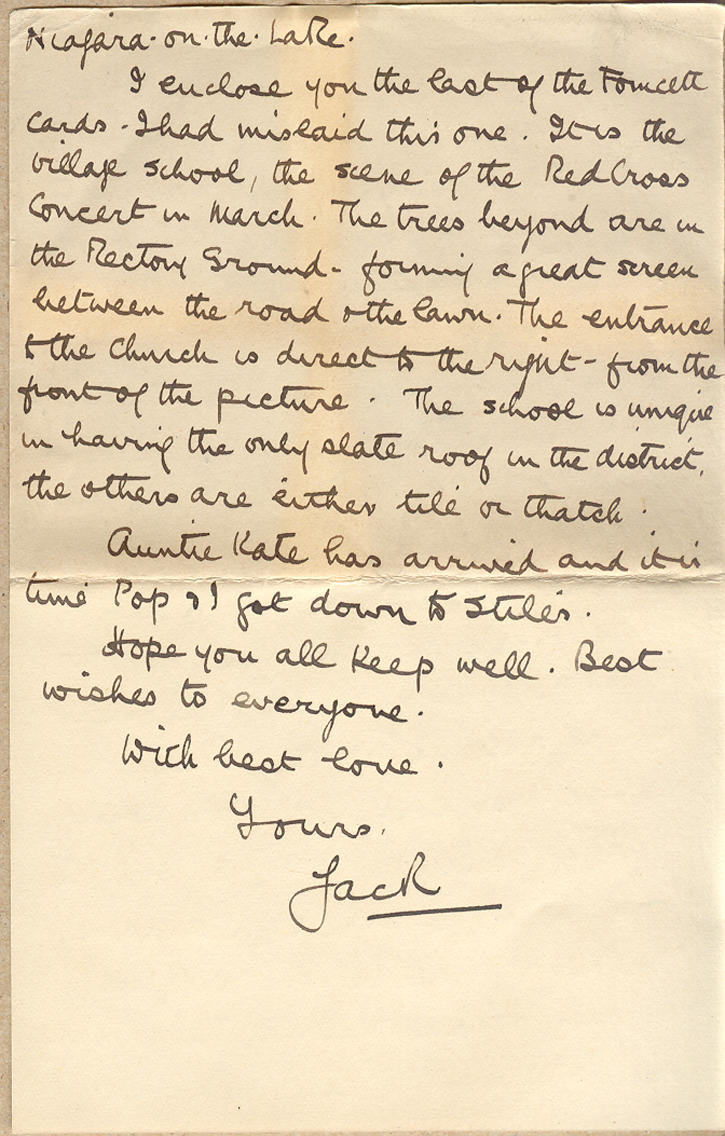 Niagara-on-the-Lake.
I enclose you the last of the Fomcett
cards - I had mislaid this one. It is the
village school, the scene of the Red Cross
Concert in March. The trees beyond are in
the Rectory Ground - forming a great screen
between the road & the lawn. The entrance
to the church is direct to the right - from the
front of the picture. The school is unique
in having the only slate roof in the district,
the others are either tile or thatch.
Auntie Kate has arrived and it is
time Pop & I got down to
Hope you all keep well. Best
wishes to everyone.
With best love.
Yours,
Jack